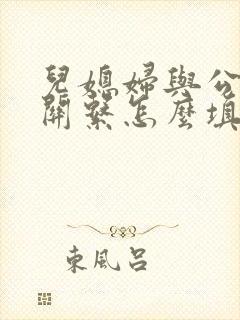 兒媳婦與公
關繫怎麼填
東風呂